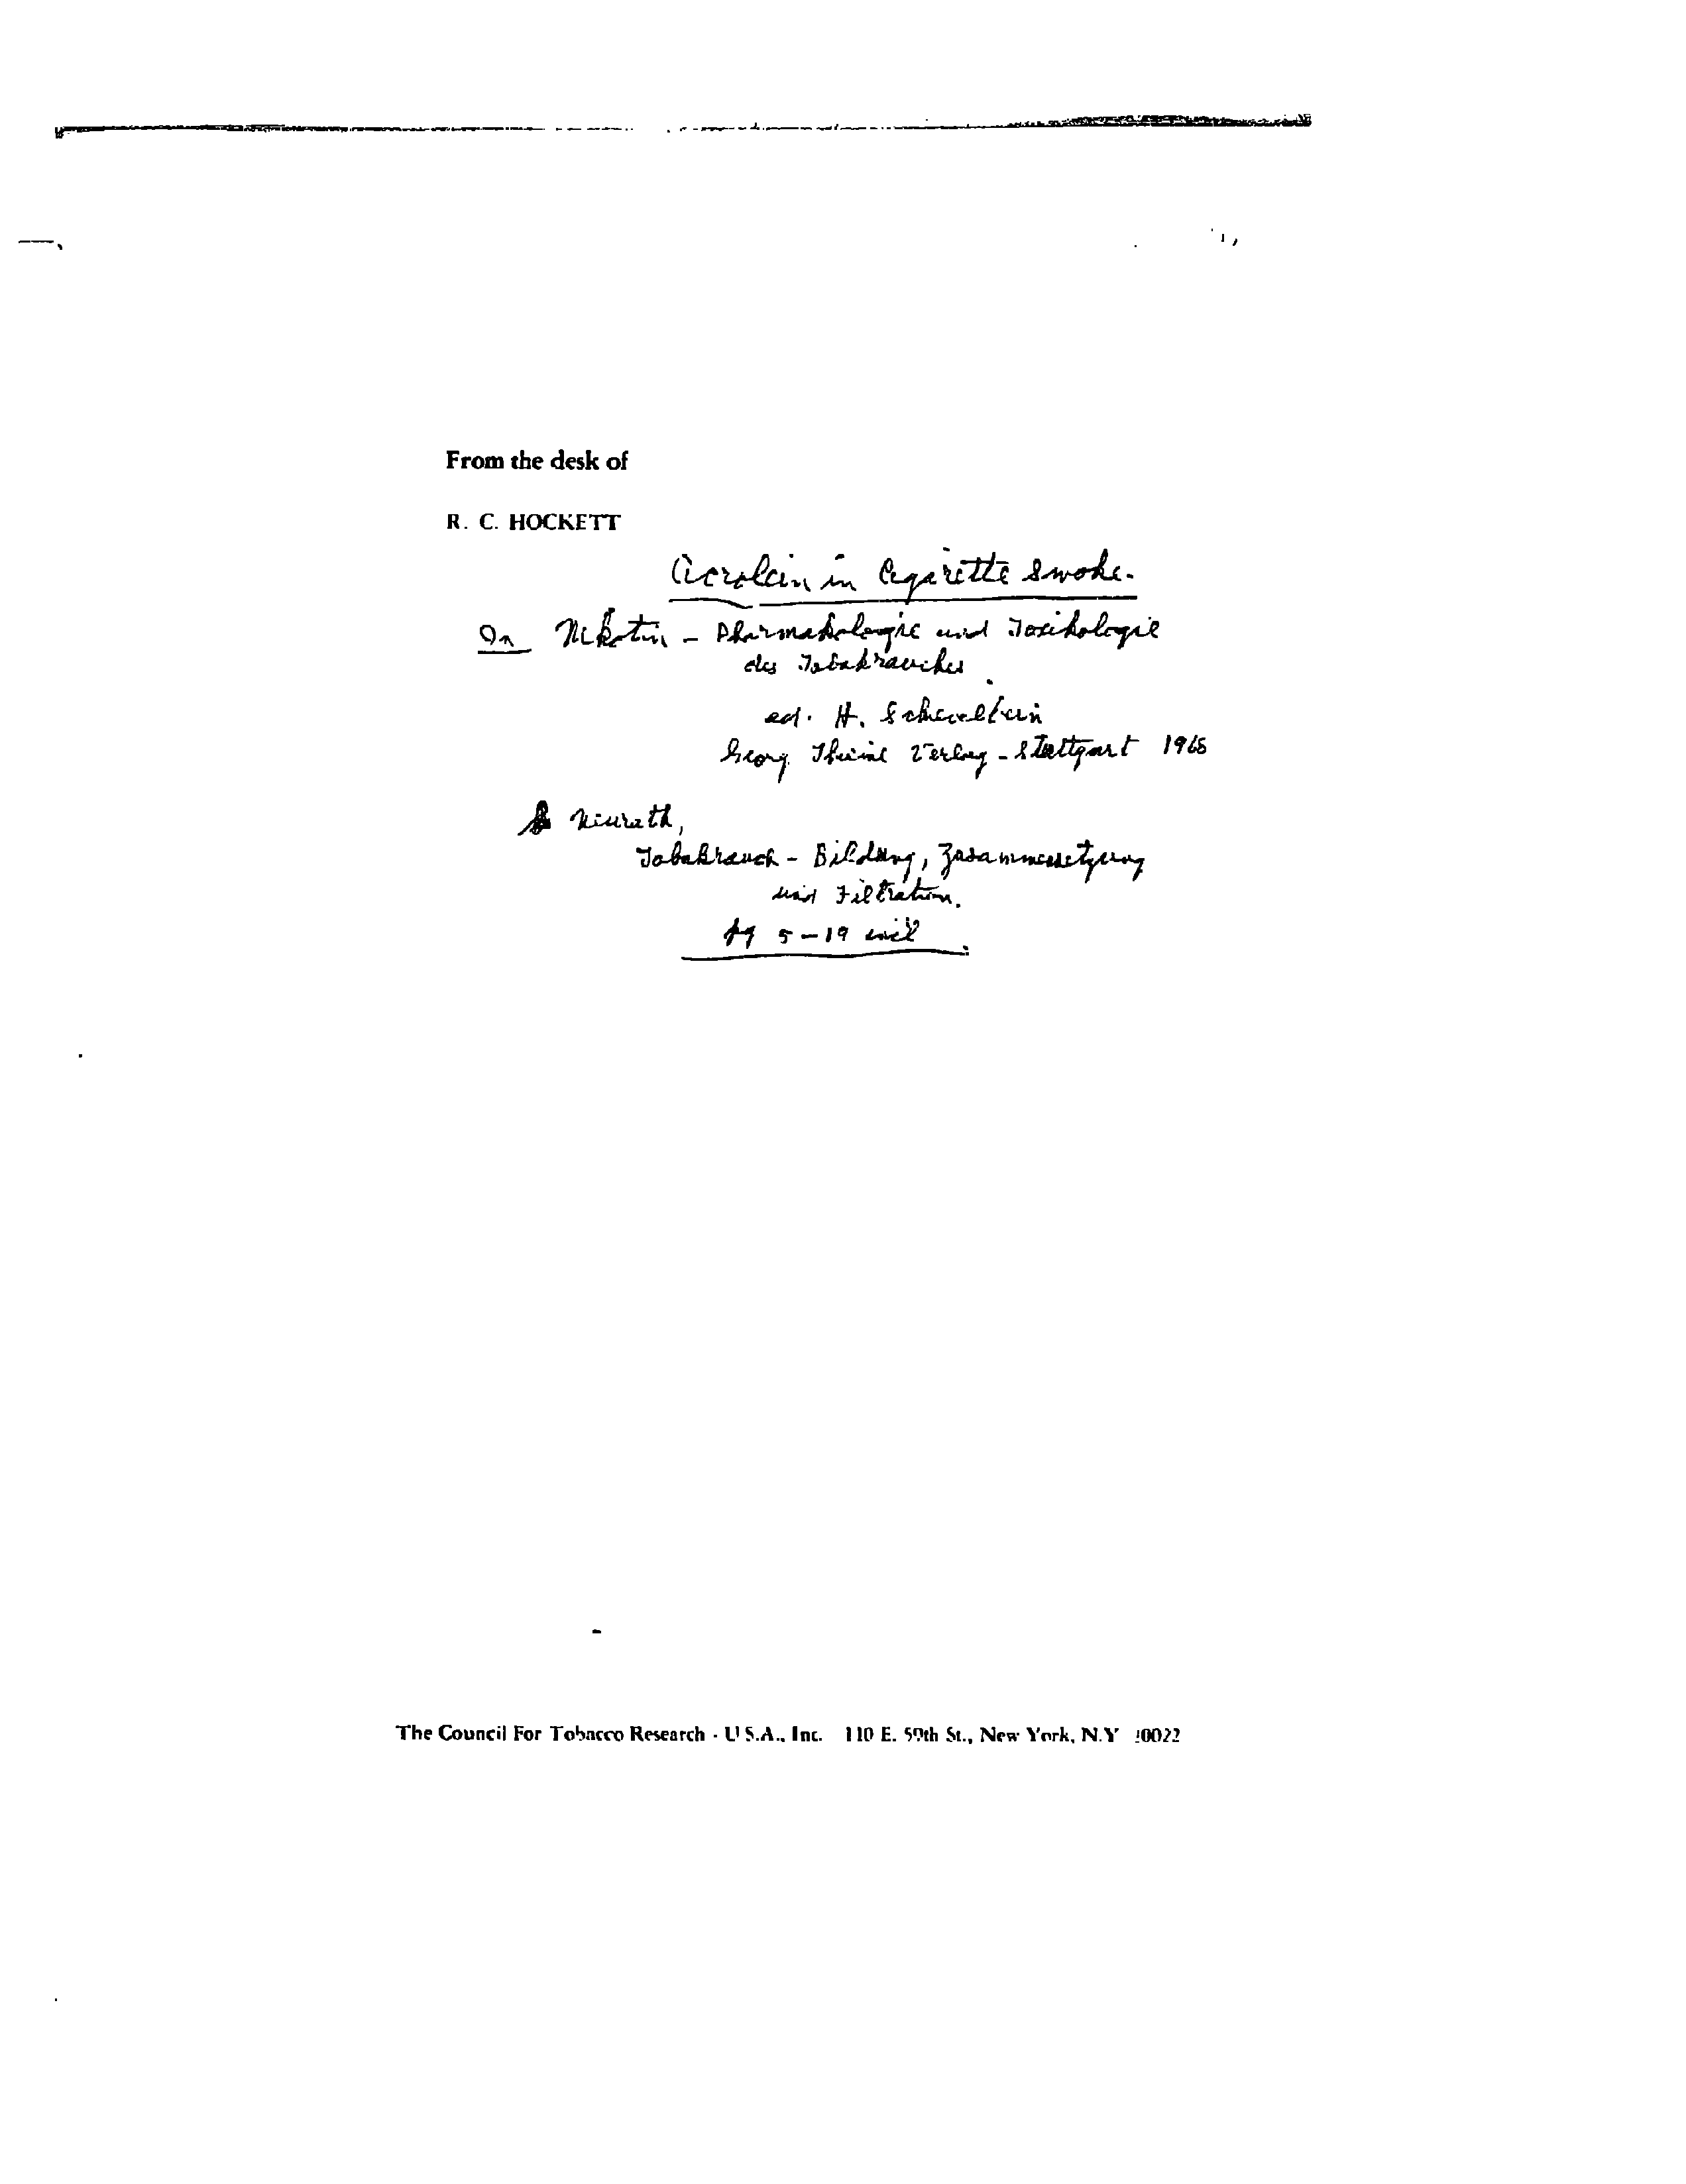 From the desk of
R. C. HOCKETT
Acrolein in Cigarette Smoke.
In Nikotin - Pharmakologie und Toxikologie
des Tabakrauches.
ed. H. Schievelbein
Georg Thieme Verlag - Stuttgart 1968
Neurath,
Tabakrauch - Bildung, Zusammensetzung
und Filtration.
pg 5-19 incl.
The Council For Tobacco Research - U.S.A., Inc. 110 E. 59th St., New York, N.Y. 10022